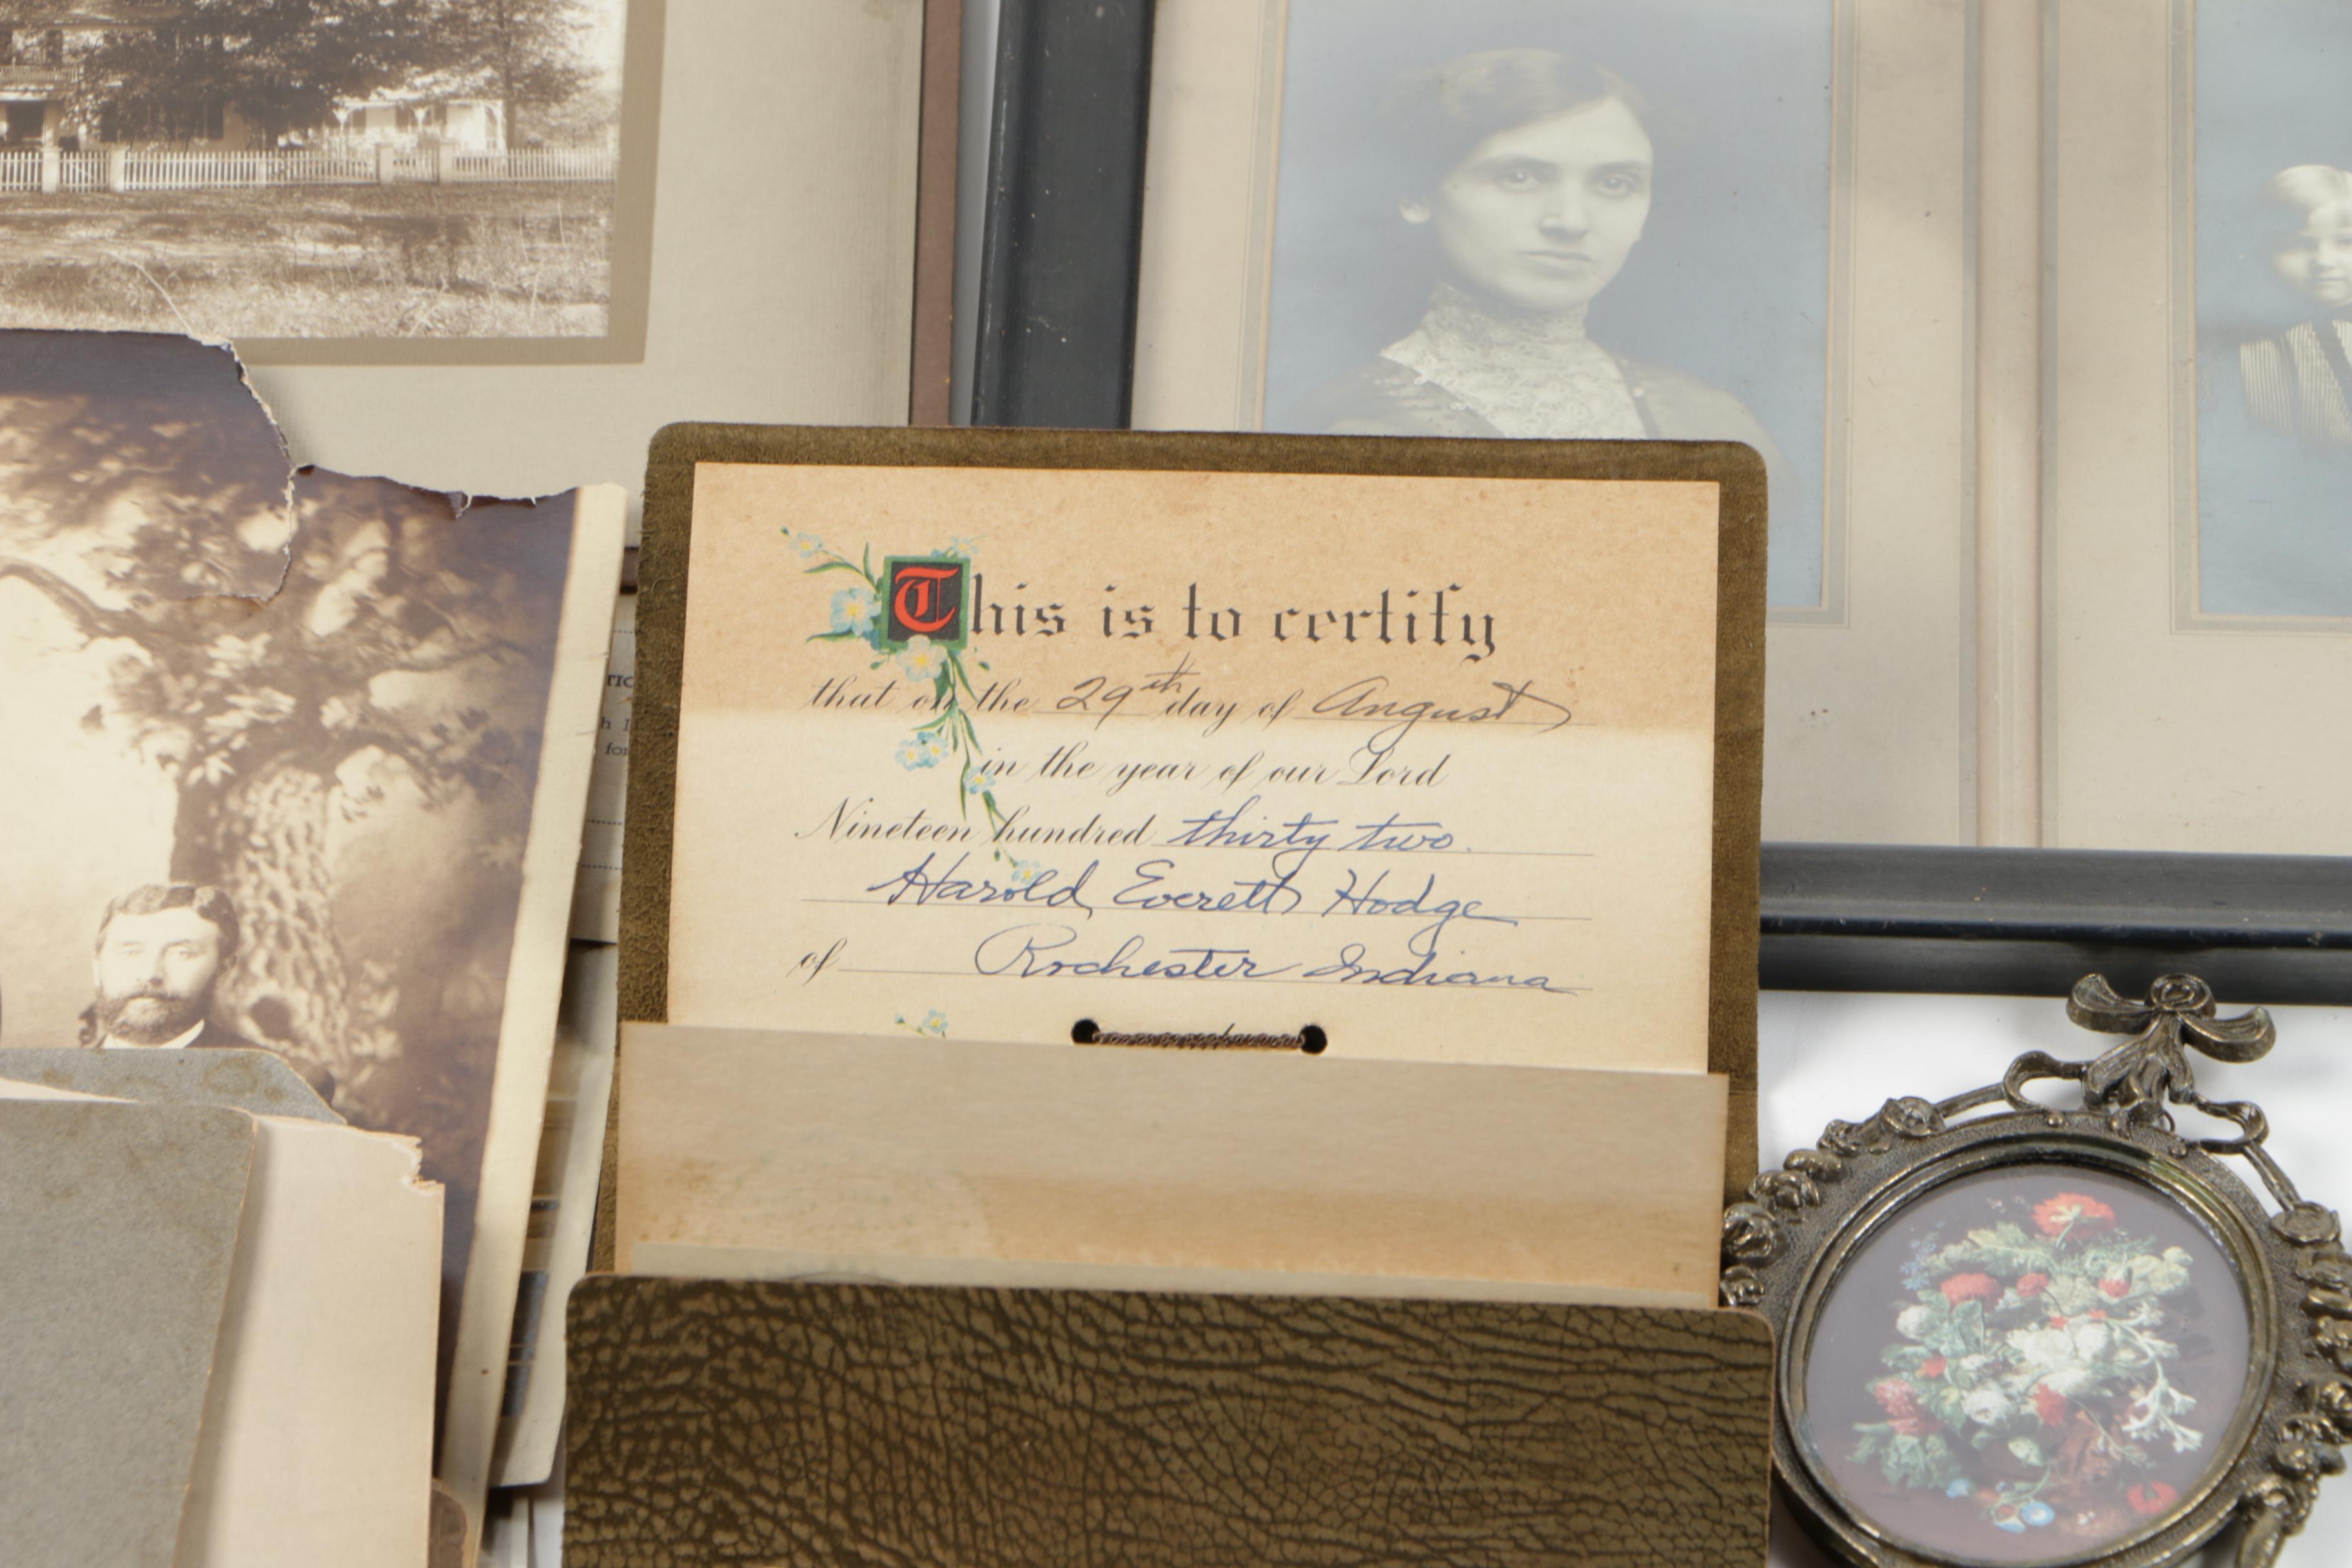 This is to certify
that on the 29th day of August
in the year of our Lord
Nineteen hundred thirty two.
Harold Everett Hodge
of Rochester Indiana